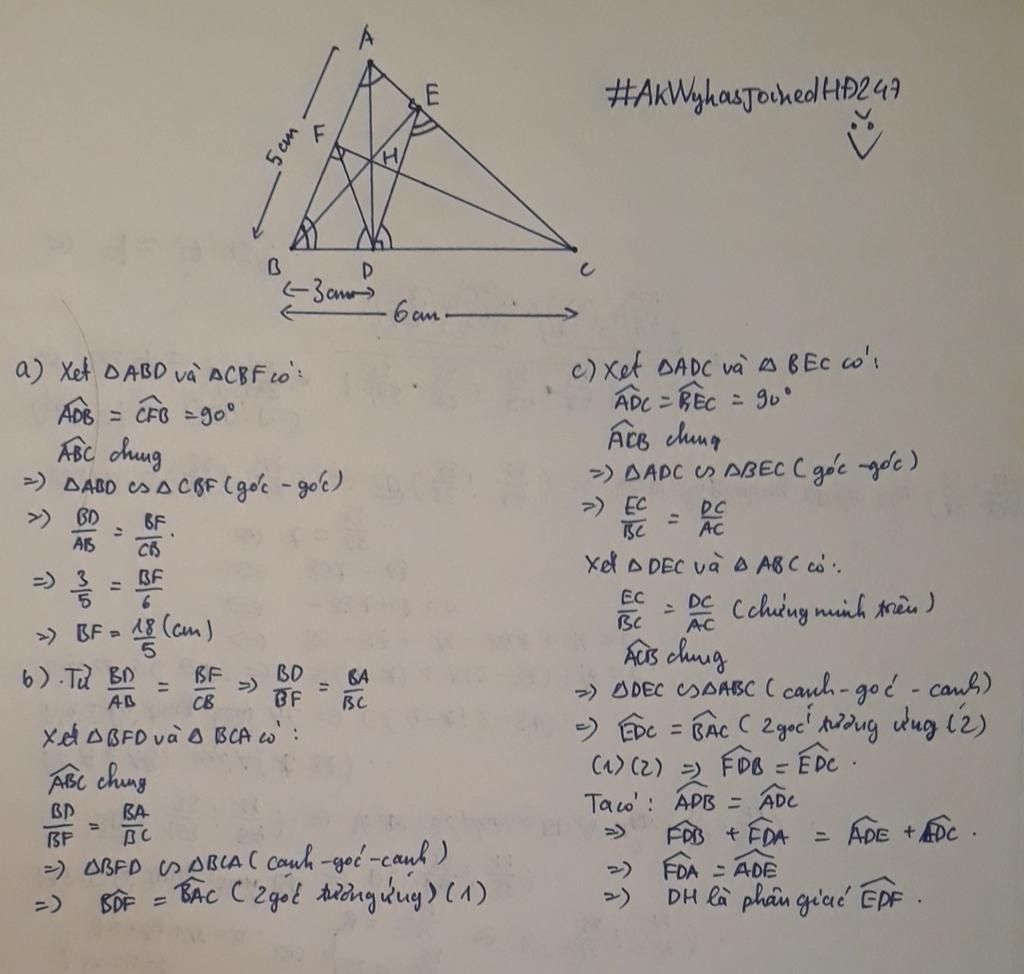 #AkWyhasJoinedHĐ247
A
E
F
H
5cm
B
D
C
3cm
6cm
a) Xét △ABD và △CBF có:
\widehat{ADB} = \widehat{CFB} = 90°
\widehat{ABC} chung
=> △ABD ∽ △CBF (góc - góc)
=> BD/AB = BF/CB.
=> 3/5 = BF/6
=> BF = 18/5 (cm)
b). Từ BD/AB = BF/CB => BD/BF = BA/BC
Xét △BFD và △BCA có:
\widehat{ABC} chung
BD/BF = BA/BC
=> △BFD ∽ △BCA (cạnh-góc-cạnh)
=> \widehat{BDF} = \widehat{BAC} (2 góc tương ứng) (1)
c) Xét △ADC và △BEC có:
\widehat{ADC} = \widehat{BEC} = 90°
\widehat{ACB} chung
=> △ADC ∽ △BEC (góc-góc)
=> EC/BC = DC/AC
Xét △DEC và △ABC có:
EC/BC = DC/AC (chứng minh trên)
\widehat{ACB} chung
=> △DEC ∽ △ABC (cạnh-góc-cạnh)
=> \widehat{EDC} = \widehat{BAC} (2 góc tương ứng (2)
(1)(2) => \widehat{FDB} = \widehat{EDC}.
Ta có: \widehat{ADB} = \widehat{ADC}
=> \widehat{FDB} + \widehat{FDA} = \widehat{ADE} + \widehat{EDC}.
=> \widehat{FDA} = \widehat{ADE}
=> DH là phân giác \widehat{EDF}.